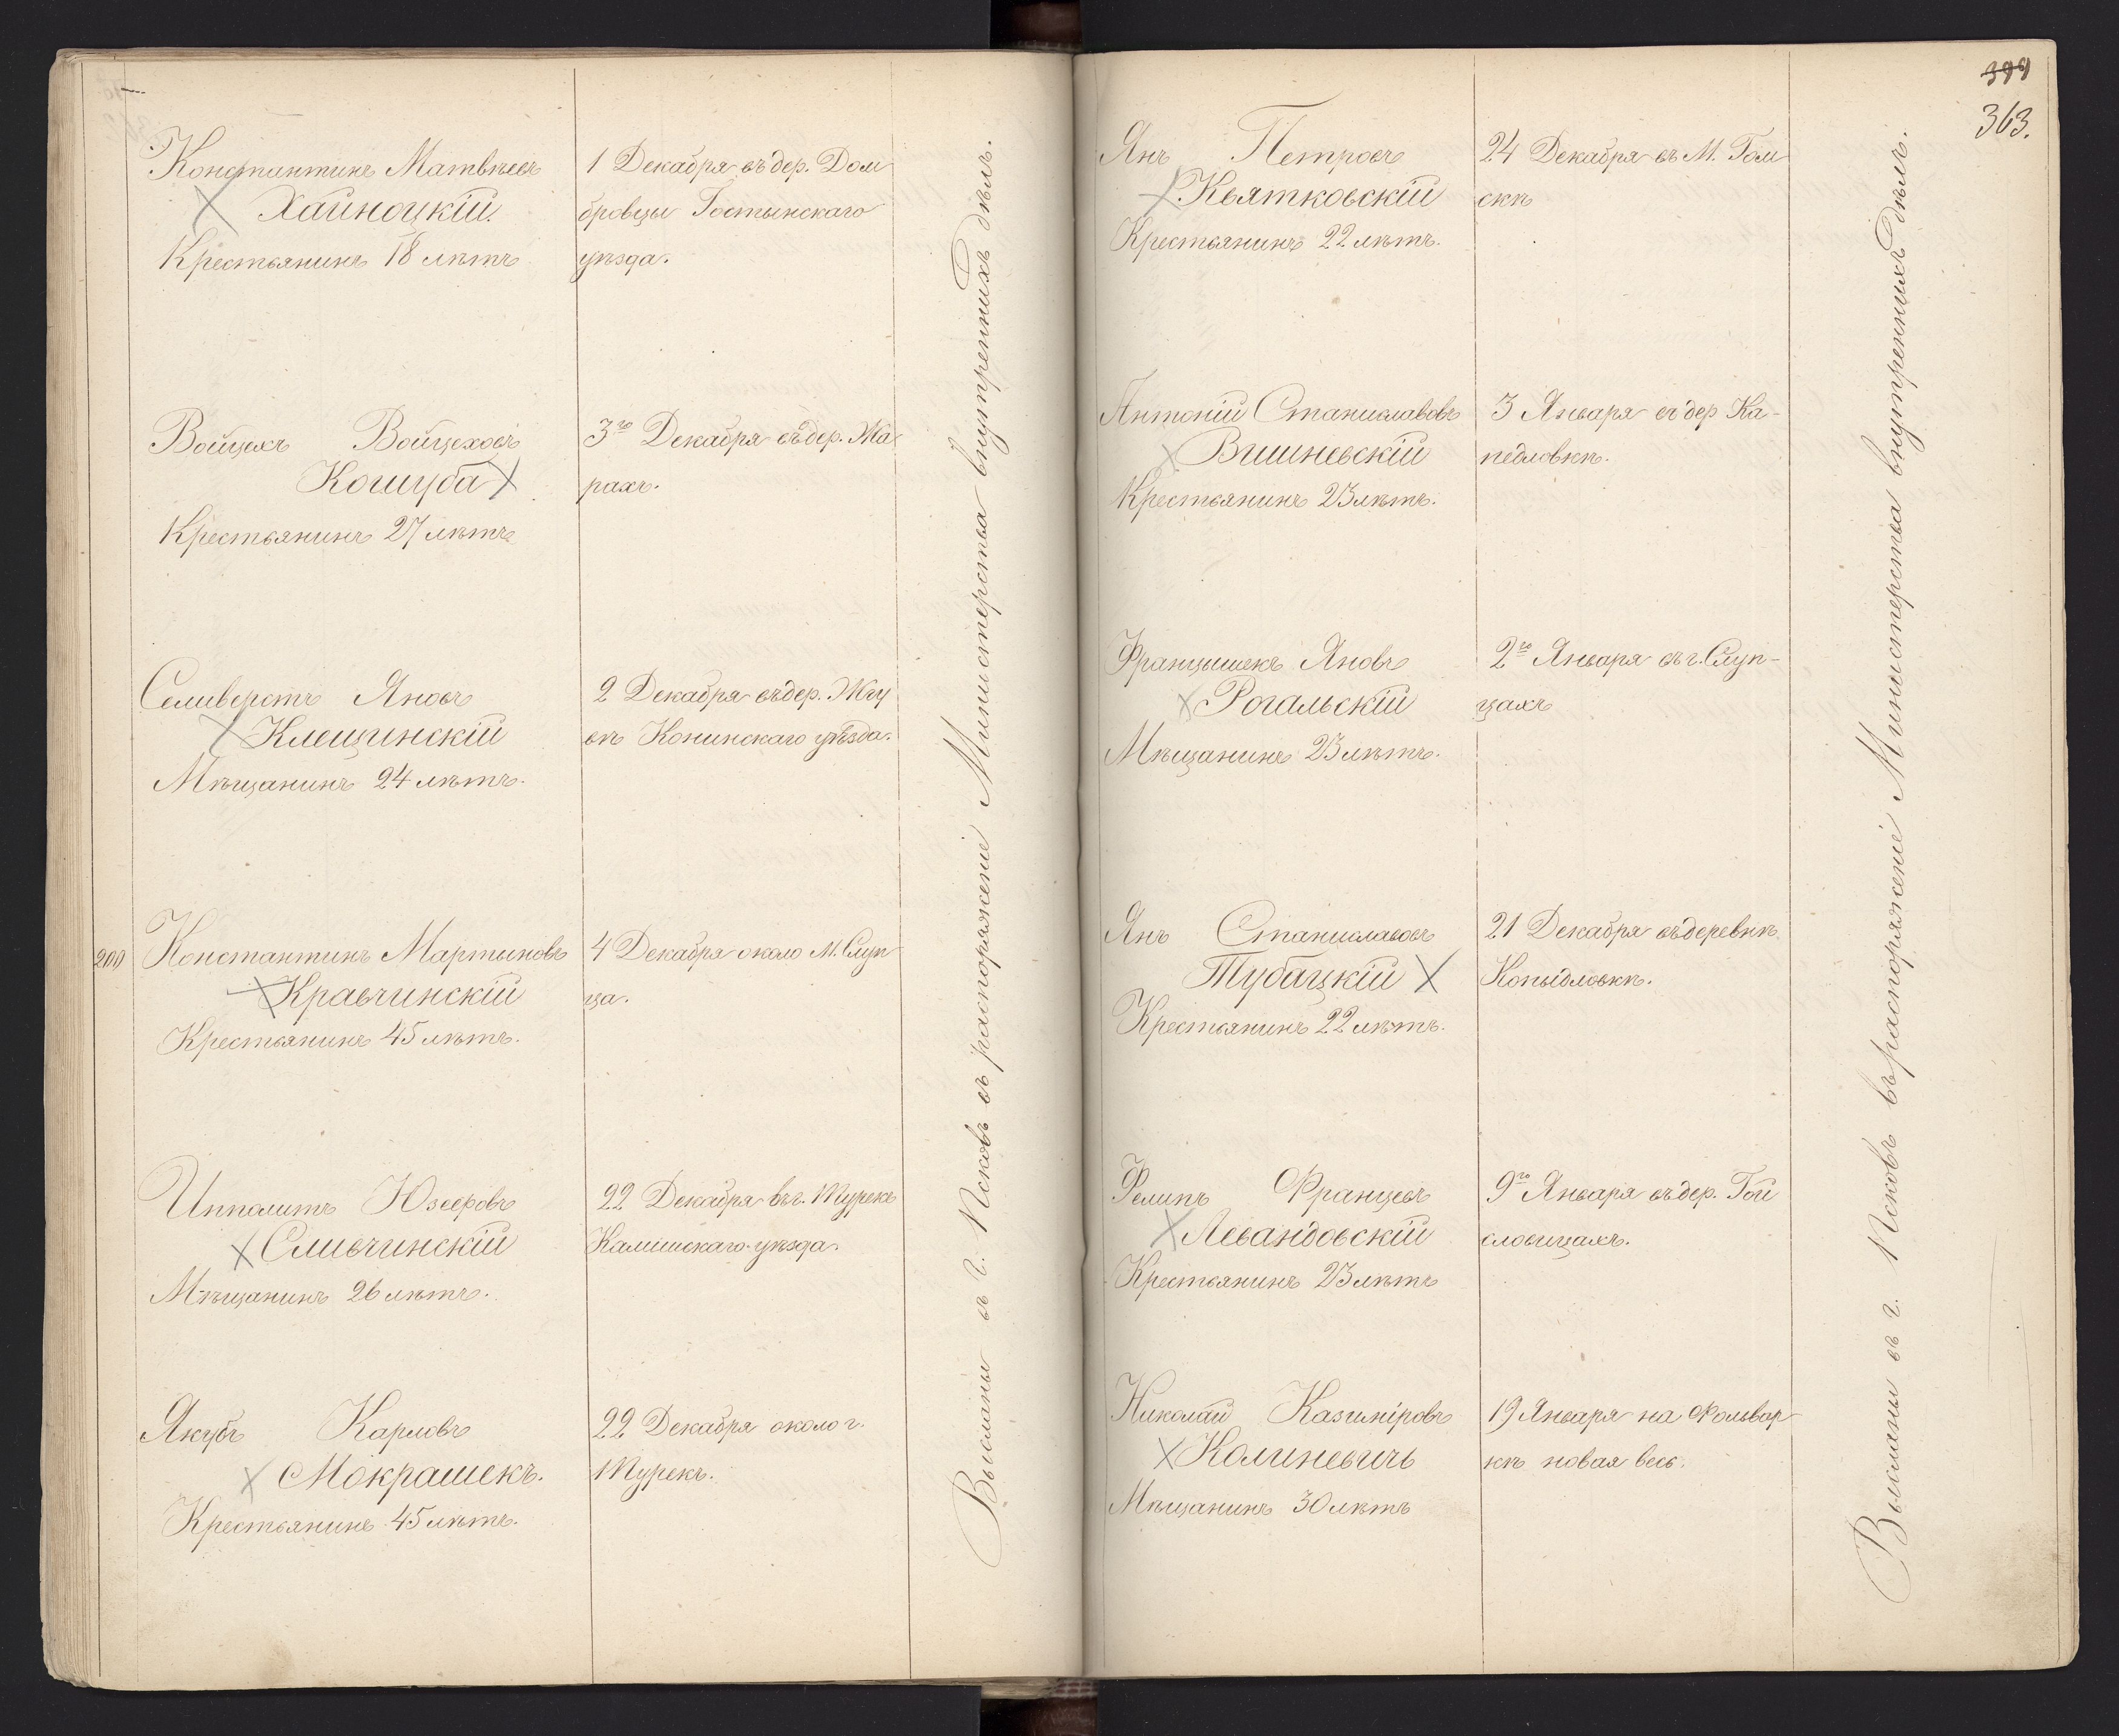 Константинъ Матвѣевъ
Хайноцкій
Крестьянинъ 18 лѣтъ
1 Декабря въ дер. Дом
бровцы Гостынскаго
уѣзда.
Войцехъ Войцеховъ
Кошуба
Крестьянинъ 27 лѣтъ
3го Декабря въ дер. Жа
рахъ.
Селиверстъ Яновъ
Клещинскій
Мѣщанинъ 24 лѣтъ.
2 Декабря въ дер. Жгу
вѣ Конинскаго уѣзда.
200
Константинъ Мартыновъ
Кравчинскій
Крестьянинъ 45 лѣтъ.
4 Декабря около М. Слуп
ца.
Ипполитъ Юзефовъ
Сливчинскій
Мѣщанинъ 26 лѣтъ.
22 Декабря въ г. Турекъ
Калишскаго уѣзда.
Якубъ Карловъ
Мокрашекъ.
Крестьянинъ 45 лѣтъ.
22 Декабря около г.
Турекъ.
Высланы въ г. Псковъ въ распоряженіе Министерства внутреннихъ дѣлъ.
399
363.
Янъ Петровъ
Квятковскій
Крестьянинъ 22 лѣтъ.
24 Декабря въ М. Голи
скѣ
Антоній Станиславовъ
Вишневскій
Крестьянинъ 23 лѣтъ.
3 Января въ дер Ка-
педловкѣ.
Францышекъ Яновъ
Рогальскій
Мѣщанинъ 23 лѣтъ.
2го Января въ г. Слуп-
цахъ
Янъ Станиславовъ
Тубацкій
Крестьянинъ 22 лѣтъ.
21 Декабря въ деревнѣ
Копыдловкѣ.
Фелипъ Францевъ
Левандовскій
Крестьянинъ 23 лѣтъ
9го Января въ дер. Гой
словицахъ.
Николай Казиміровъ
Калиневичь
Мѣщанинъ 30 лѣтъ
19 Января на Фольвар
кѣ новая весь.
Высланы въ г. Псковъ въ распоряженіе Министерства внутреннихъ дѣлъ.